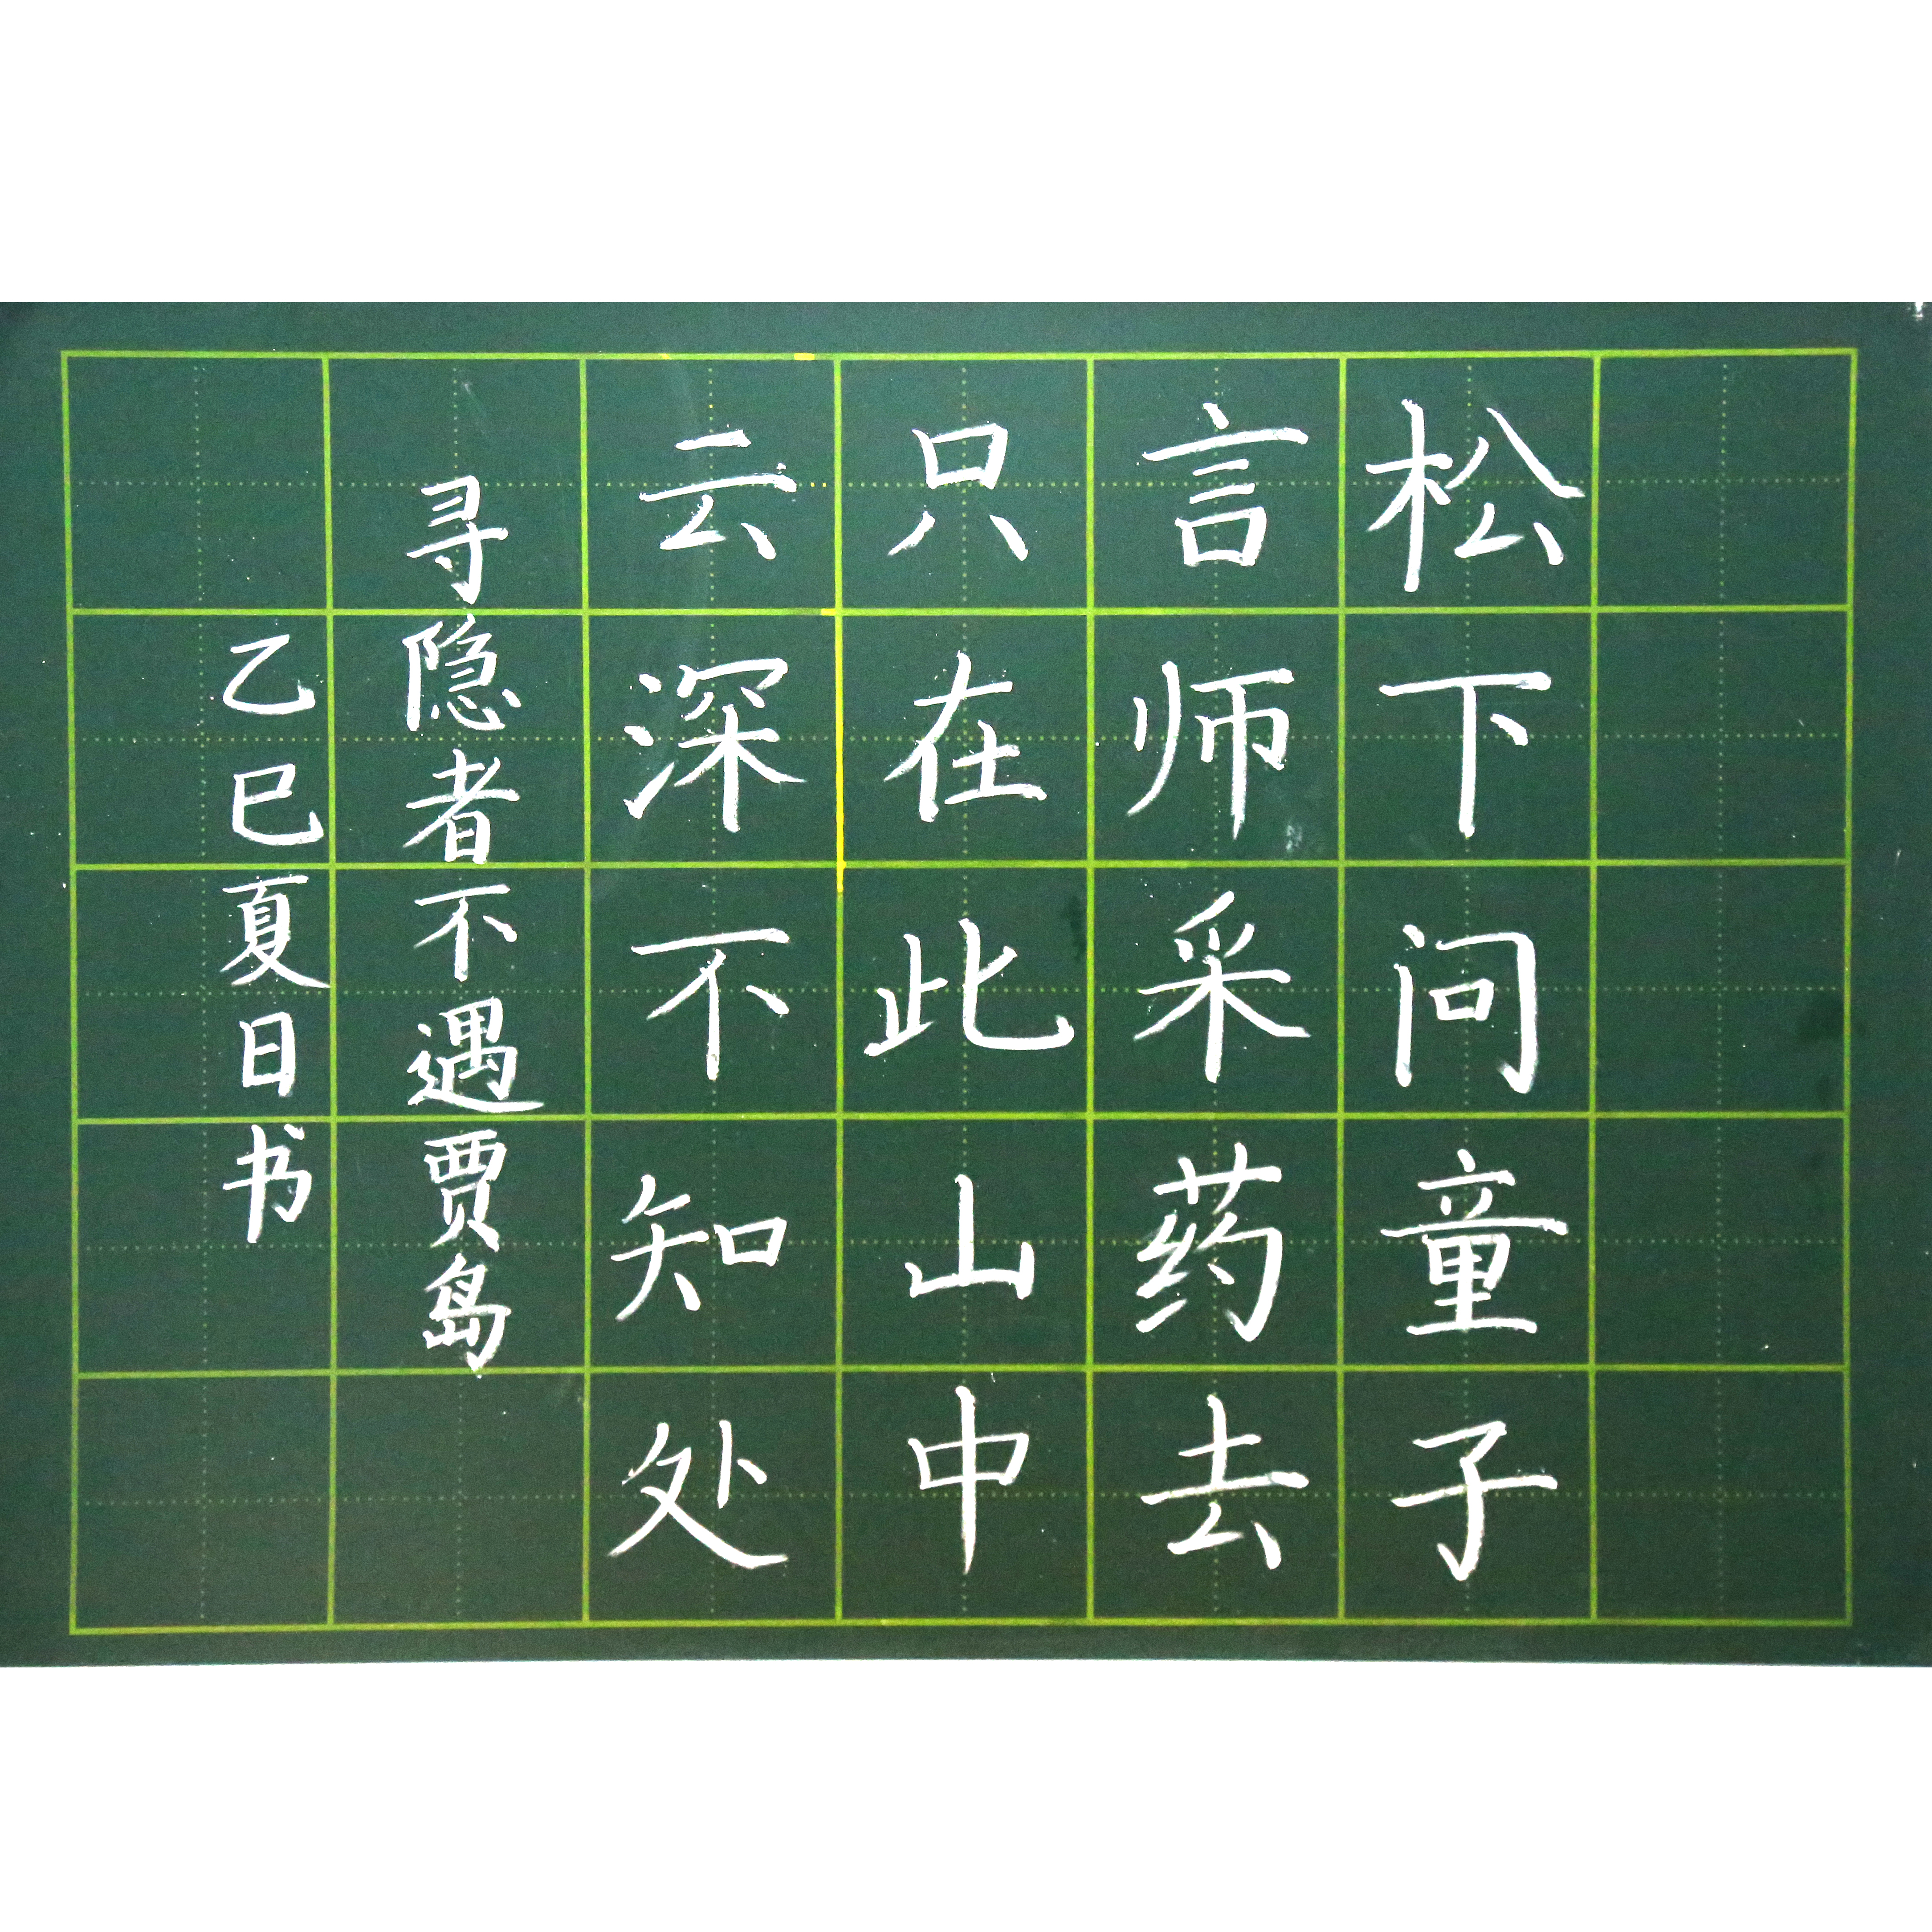 松下问童子
言师采药去
只在此山中
云深不知处
寻隐者不遇贾岛
乙巳夏日书